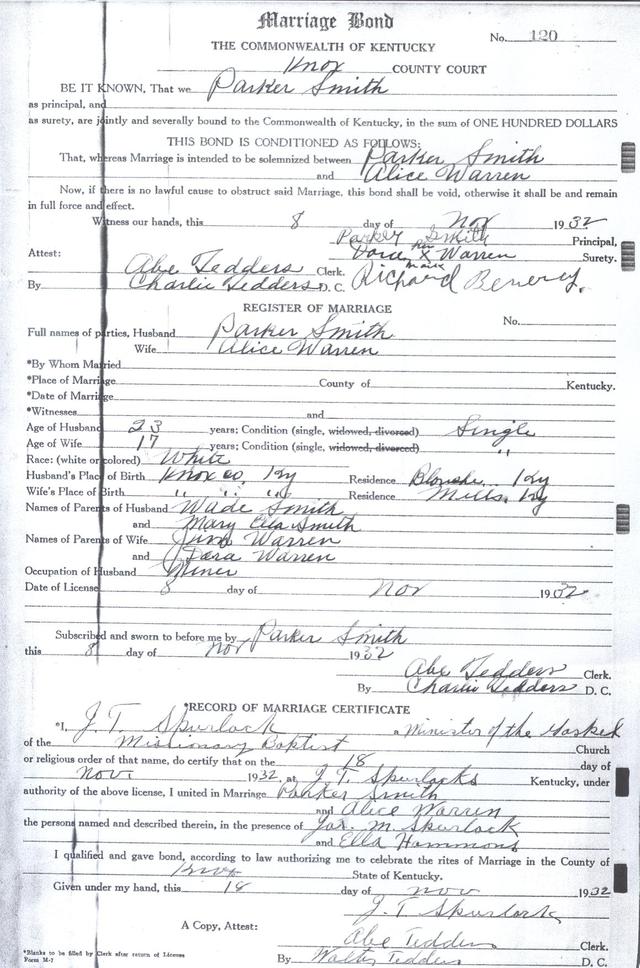 Marriage Bond
No. 120
THE COMMONWEALTH OF KENTUCKY
Knox COUNTY COURT
BE IT KNOWN, That we Parker Smith
as principal, and
as surety, are jointly and severally bound to the Commonwealth of Kentucky, in the sum of ONE HUNDRED DOLLARS
THIS BOND IS CONDITIONED AS FOLLOWS:
That, whereas Marriage is intended to be solemnized between Parker Smith
and Alice Warren
Now, if there is no lawful cause to obstruct said Marriage, this bond shall be void, otherwise it shall be and remain
in full force and effect.
Witness our hands, this 8 day of Nov 1932
Parker Smith Principal,
her
X Warren Surety.
mark
Attest: Abe Tedders Clerk. Richard
By Charlie Tedders D. C.
REGISTER OF MARRIAGE
No.
Full names of parties, Husband Parker Smith
Wife Alice Warren
*By Whom Married
*Place of Marriage County of Kentucky.
*Date of Marriage
*Witnesses and
Age of Husband 23 years; Condition (single, widowed, divorced) Single
Age of Wife 17 years; Condition (single, widowed, divorced) "
Race: (white or colored) White
Husband's Place of Birth Knox co, Ky Residence Ky
Wife's Place of Birth " " " Residence Mills, Ky
Names of Parents of Husband Wade Smith
and Mary Ella Smith
Names of Parents of Wife Jim Warren
and Dora Warren
Occupation of Husband Miner
Date of License 8 day of Nov 1932
Subscribed and sworn to before me by Parker Smith
this 8 day of Nov 1932
Abe Tedders Clerk.
By Charlie Tedders D. C.
*RECORD OF MARRIAGE CERTIFICATE
*I, J. T. Spurlock a Minister of the Gosped
of the Missionary Baptist Church
or religious order of that name, do certify that on the 18 day of
Nov. 1932, at J. T. Spurlocks Kentucky, under
authority of the above license, I united in Marriage Parker Smith
and Alice Warren
the persons named and described therein, in the presence of Jas. M. Spurlock
and Ella Hammons
I qualified and gave bond, according to law authorizing me to celebrate the rites of Marriage in the County of
Knox State of Kentucky.
Given under my hand, this 18 day of nov 1932
J. T. Spurlock
A Copy, Attest: Abe Tedders Clerk.
By Walter Tedders D. C.
*Blanks to be filled by Clerk after return of License
Form M-7